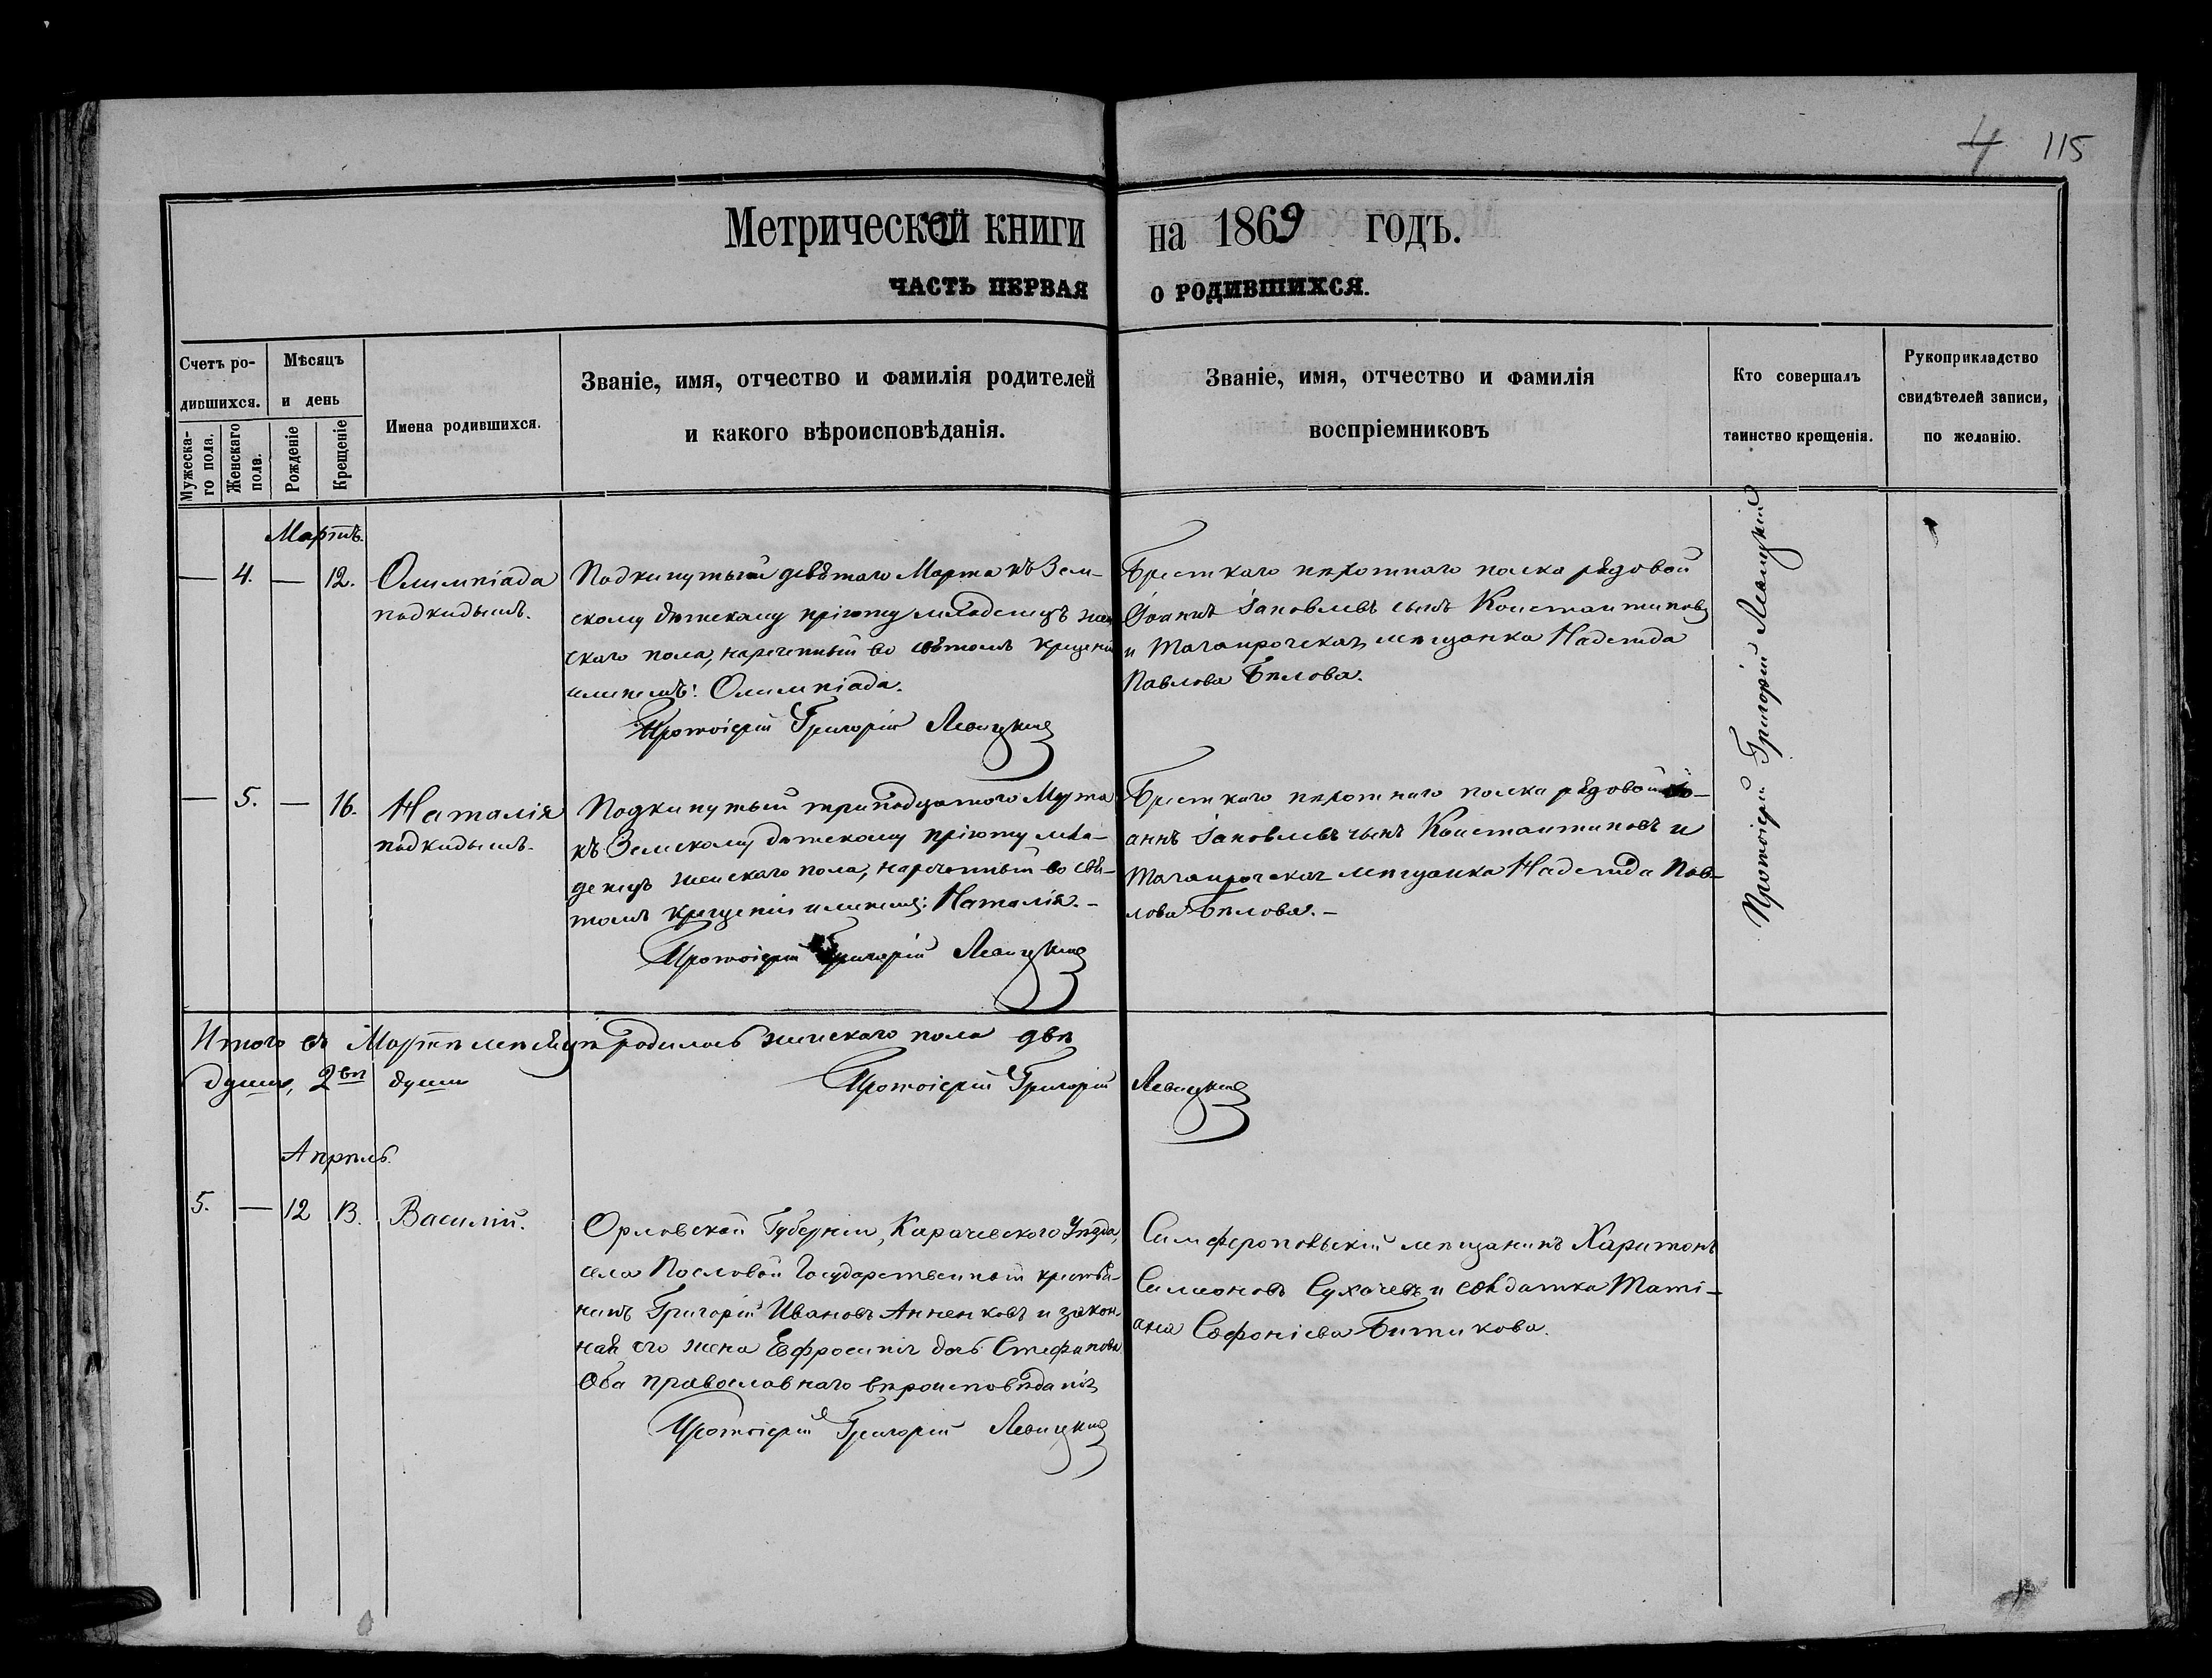 4 115
Метрической книги на 1869 годъ.
ЧАСТЬ ПЕРВАЯ О РОДИВШИХСЯ.
Счетъ ро-
дившихся.
Мѣсяцъ
и день
Мужеска-
го пола.
Женскаго
пола.
Рожденіе
Крещеніе
Имена родившихся.
Званіе, имя, отчество и фамилія родителей
и какого вѣроисповѣданія.
Званіе, имя, отчество и фамилія
воспріемниковъ
Кто совершалъ
таинство крещенія.
Рукоприкладство
свидѣтелей записи,
по желанію.
Мартъ.
— 4. — 12.
Олимпіада
подкидышъ.
Подкинутый девятаго Марта къ Зем-
скому дѣтскому пріюту младенецъ жен
скаго пола, нареченный во святомъ крещеніи
именемъ: Олимпіада.
Протоіерей Григорій Левицкій
Брестскаго пѣхотнаго полка рядовой
Іоаннъ Іаковлевъ сынъ Константиновъ
и Таганрогская мѣщанка Надежда
Павлова Бѣлова.
Протоіерей Григорій Левицкій
— 5. — 16.
Наталія
подкидышъ.
Подкинутый тринадцатого Марта
къ Земскому дѣтскому пріюту мла-
денецъ женскаго пола, нареченный во свя-
томъ крещеніи именемъ: Наталія. -
Протоіерей Григорій Левицкій
Брестскаго пѣхотнаго полка рядовой Іо-
аннъ Іаковлевъ сынъ Константиновъ и
Таганрогская мѣщанка Надежда Пав-
лова Бѣлова. -
Итого въ Мартѣ мѣсяцѣ родилось женскаго пола двѣ
души, 2вѣ души
Протоіерей Григорій Левицкій
Апрѣль.
5. — 12 13.
Василій.
Орловской Губерніи, Карачевского Уѣзда,
села Пословой Государственный крестья-
нинъ Григорій Ивановъ Анненковъ и закон-
ная его жена Евфросинія дочь Стефанова
Оба православнаго вѣроисповѣданія
Протоіерей Григорій Левицкій
Симферопольскій мѣщанинъ Харитонъ
Симеоновъ Сухачевъ и солдатка Таті-
ана Софоніева Битикова.